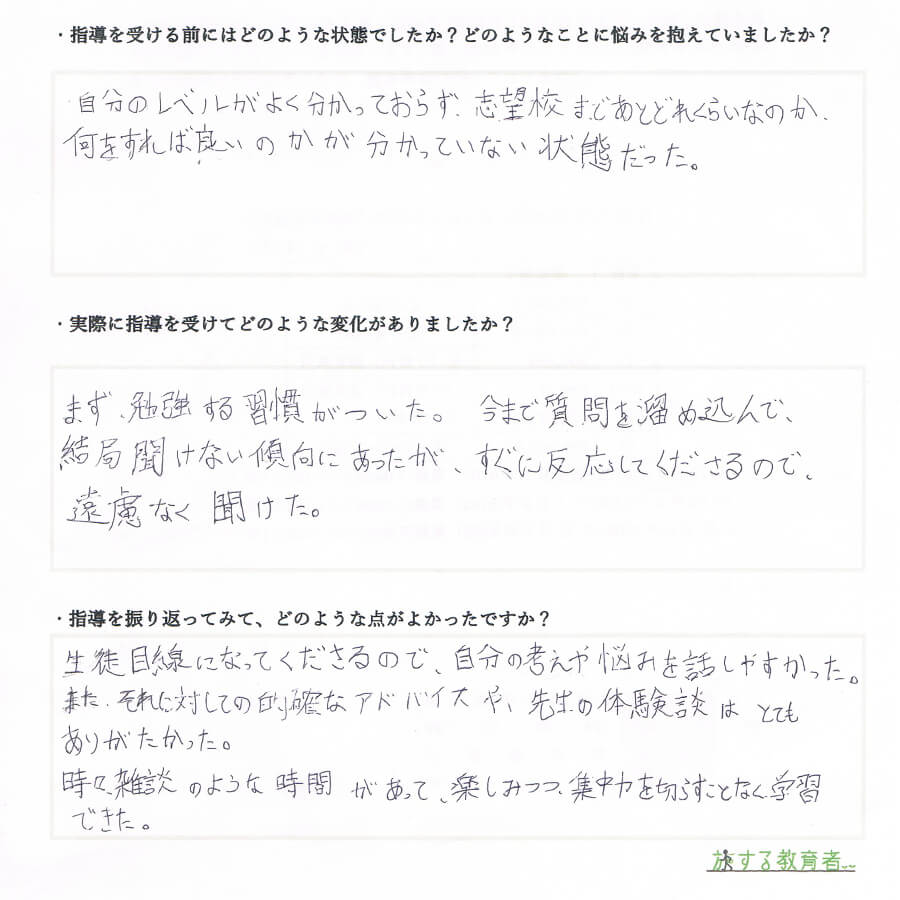 ・指導を受ける前にはどのような状態でしたか？どのようなことに悩みを抱えていましたか？
自分のレベルがよく分かっておらず、志望校まであとどれくらいなのか、
何をすれば良いのかが分かっていない状態だった。
・実際に指導を受けてどのような変化がありましたか？
まず、勉強する習慣がついた。今まで質問を溜め込んで、
結局聞けない傾向にあったが、すぐに反応してくださるので、
遠慮なく聞けた。
・指導を振り返ってみて、どのような点がよかったですか？
生徒目線になってくださるので、自分の考えや悩みを話しやすかった。
また、それに対しての的確なアドバイスや、先生の体験談はとても
ありがたかった。
時々、雑談のような時間があって、楽しみつつ、集中力を切らすことなく学習
できた。
旅する教育者